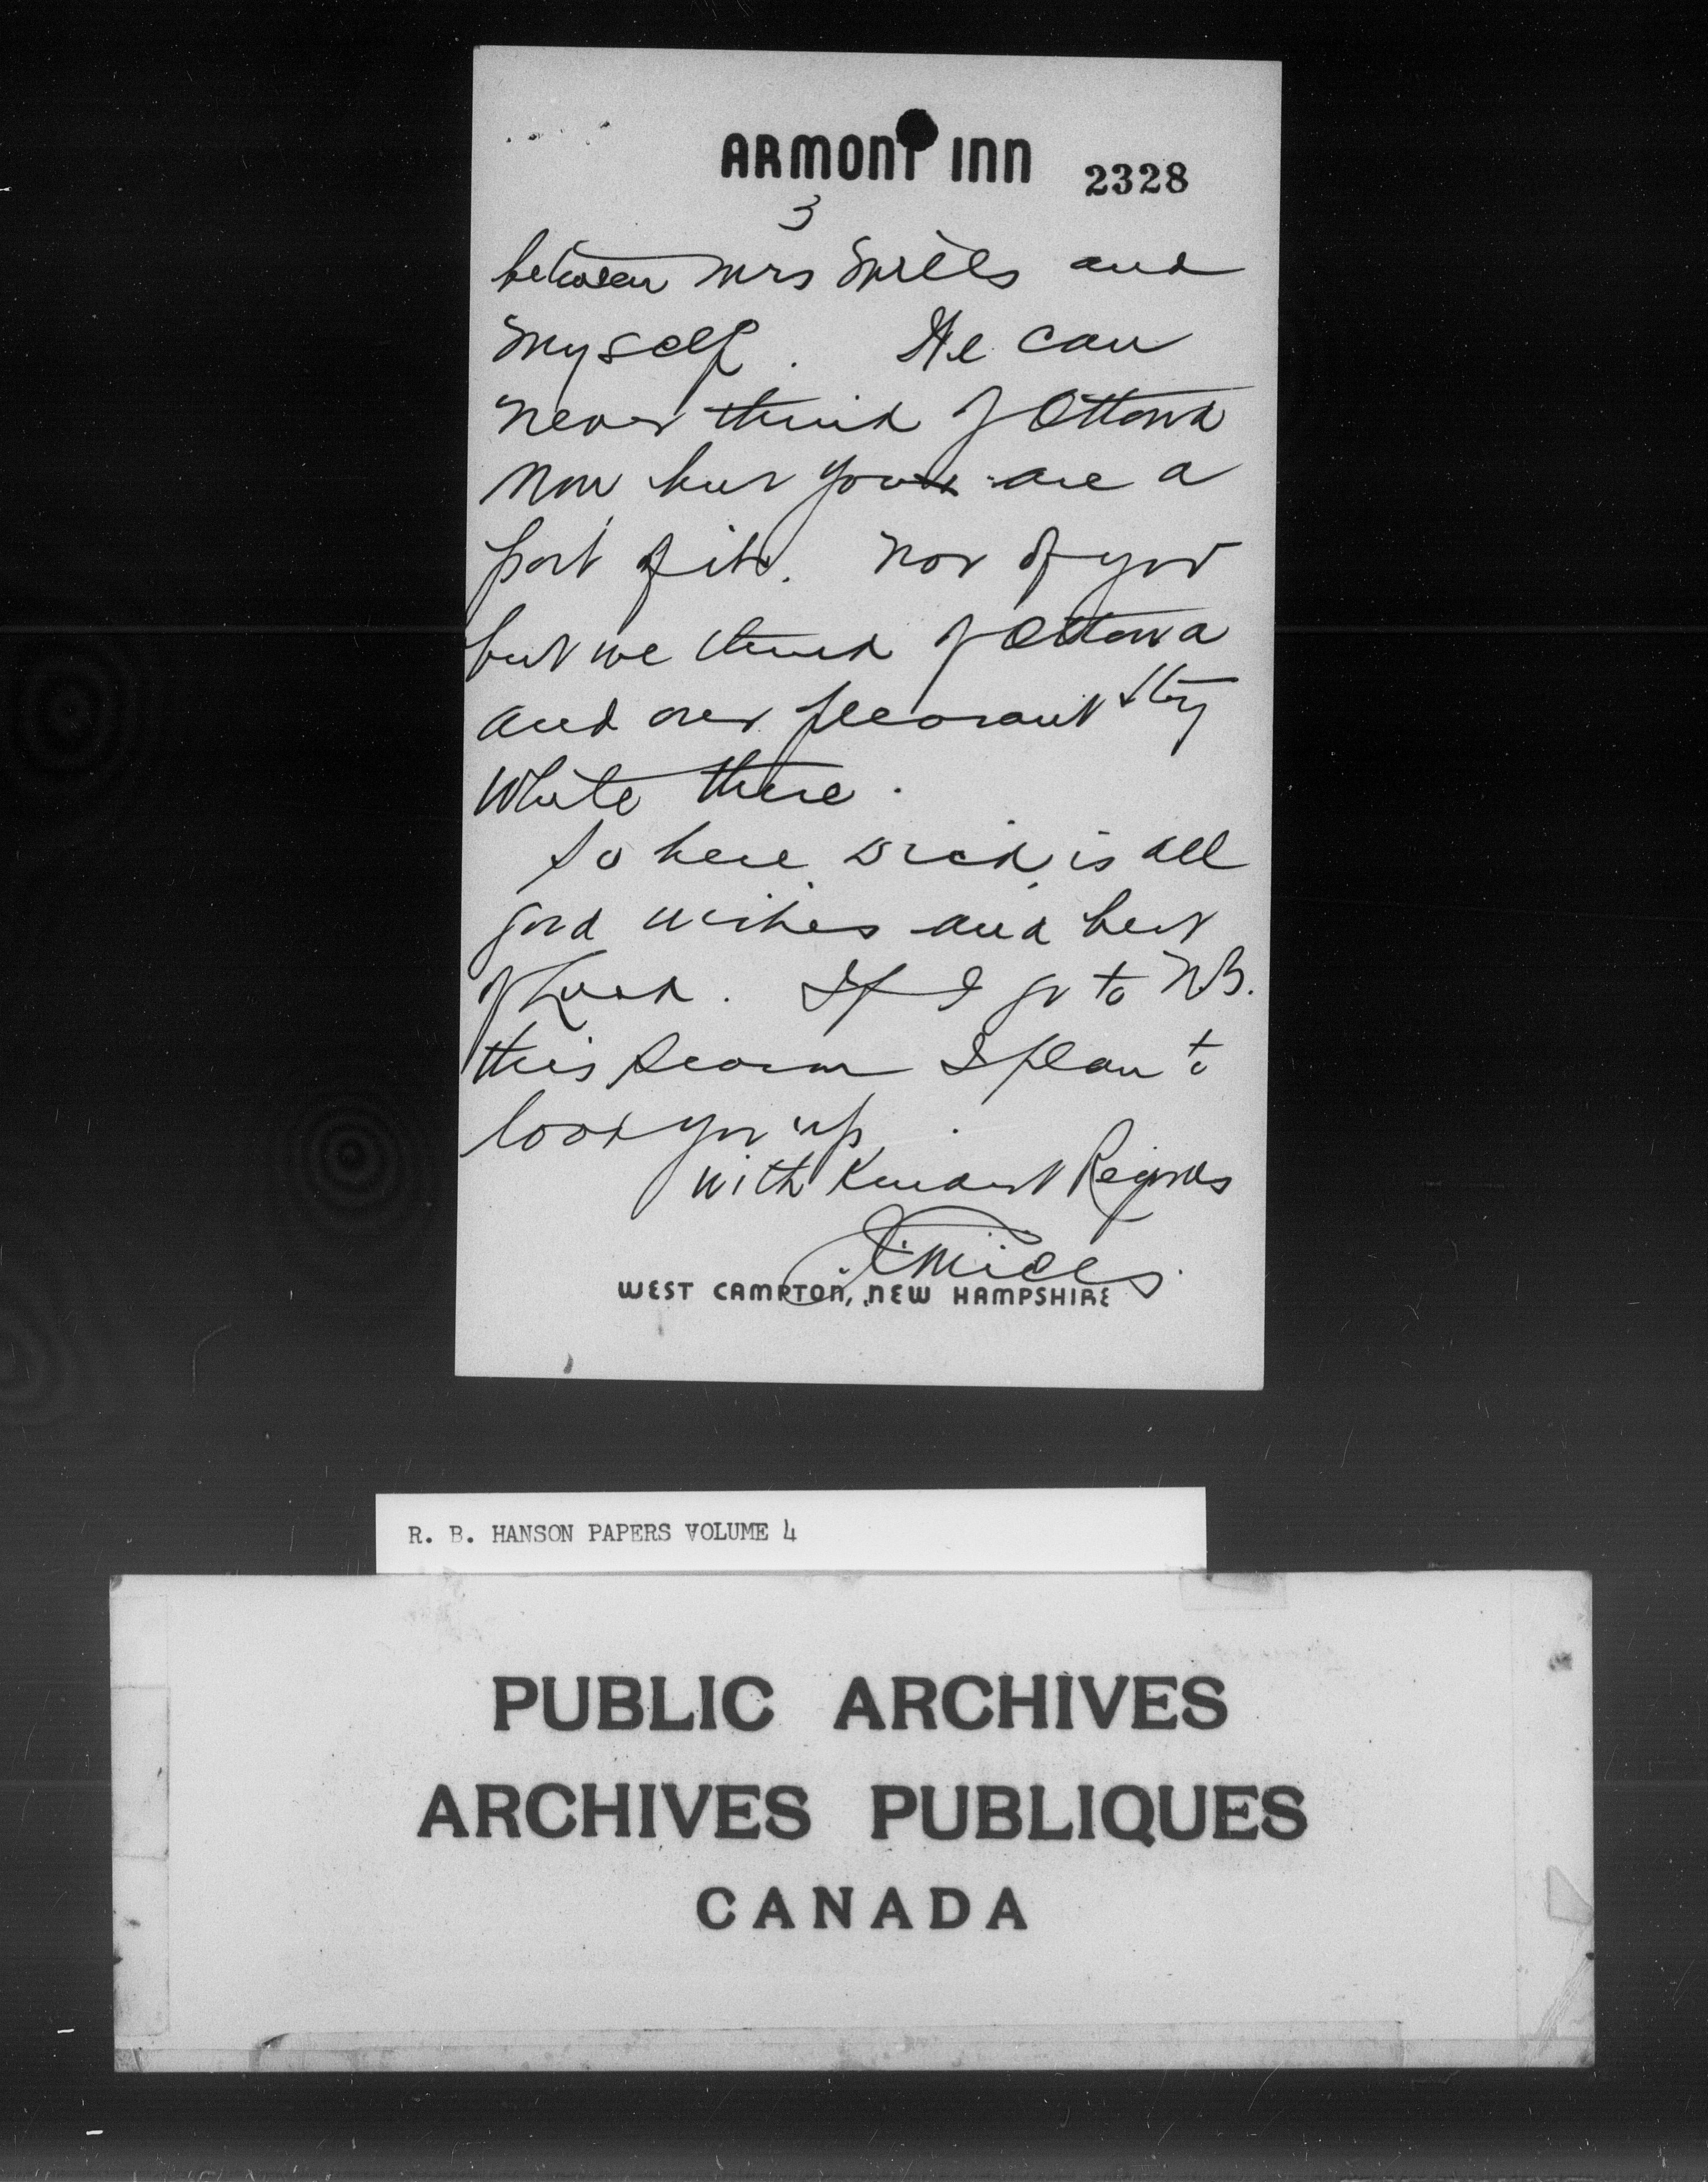 ARMONT INN 2328
3
between Mrs Mills and
myself. We can
never think of Ottawa
now but you are a
part of it. Nor of you
but we think of Ottawa
and our pleasant stay
while there.
So here Dick is all
good wishes and best
of Luck. If I go to N.B.
this season I plan to
look you up.
with Kindest Regards
Mills.
WEST CAMPTON, NEW HAMPSHIRE
R. B. HANSON PAPERS VOLUME 4
PUBLIC ARCHIVES
ARCHIVES PUBLIQUES
CANADA